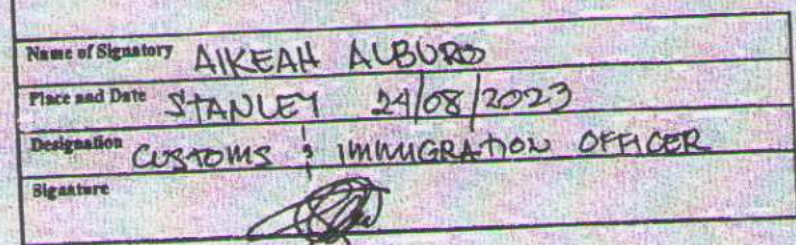 Name of Signatory AIKEAH ALBURO
Place and Date STANLEY 24/08/2023
Designation CUSTOMS & IMMIGRATION OFFICER
Signature